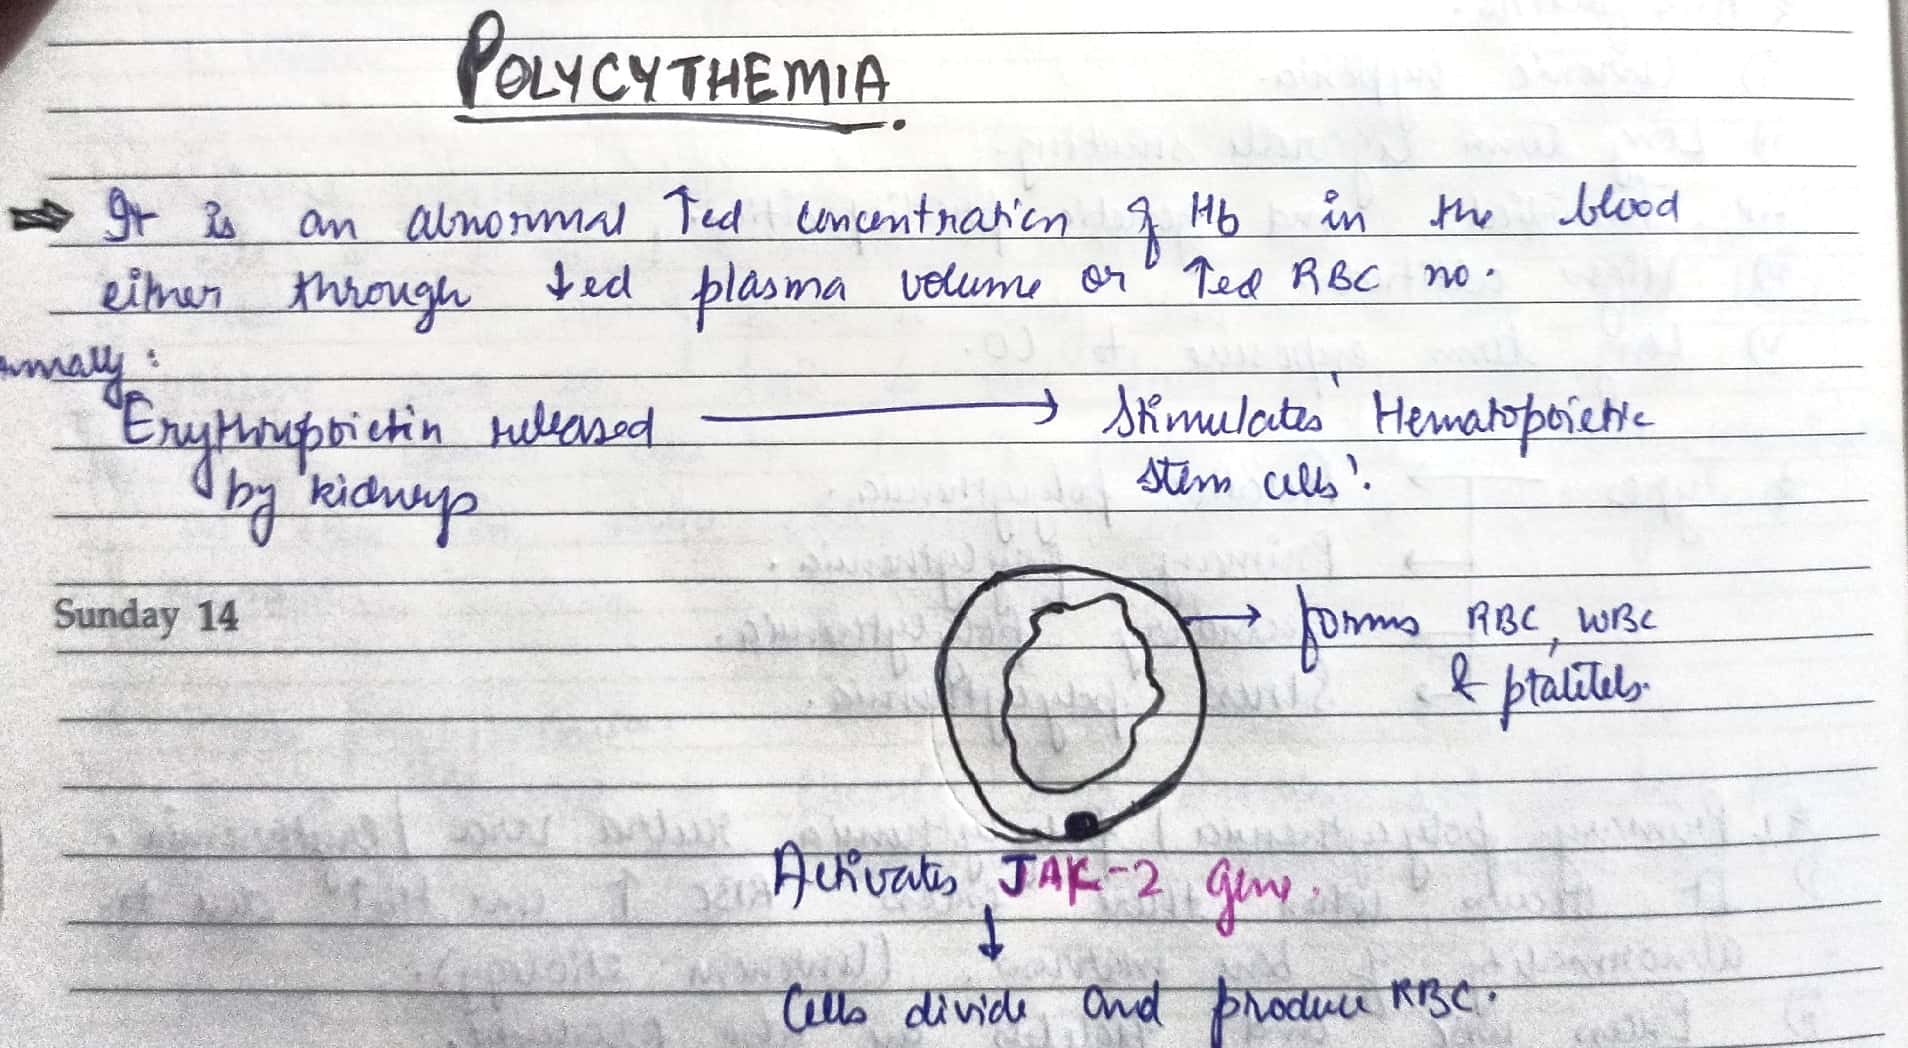 POLYCYTHEMIA.
⇒ It is an abnormal ↑ed concentration of Hb in the blood
either through ↓ed plasma volume or ↑ed RBC no.
Erythropoietin released → Stimulates Hematopoietic
by kidneys stem cells.
Sunday 14
→ forms RBC, WBC
& ptalitels.
Activates JAK-2 gene.
↓
Cells divide and produce RBC.